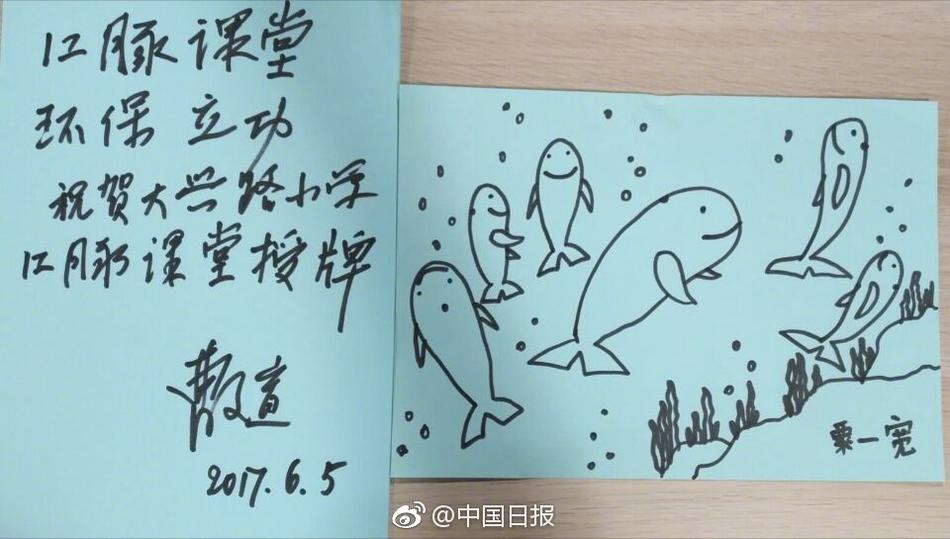 江豚课堂
环保 立功
祝贺大兴路小学
江豚课堂授牌
2017.6.5
栗一宽
@中国日报